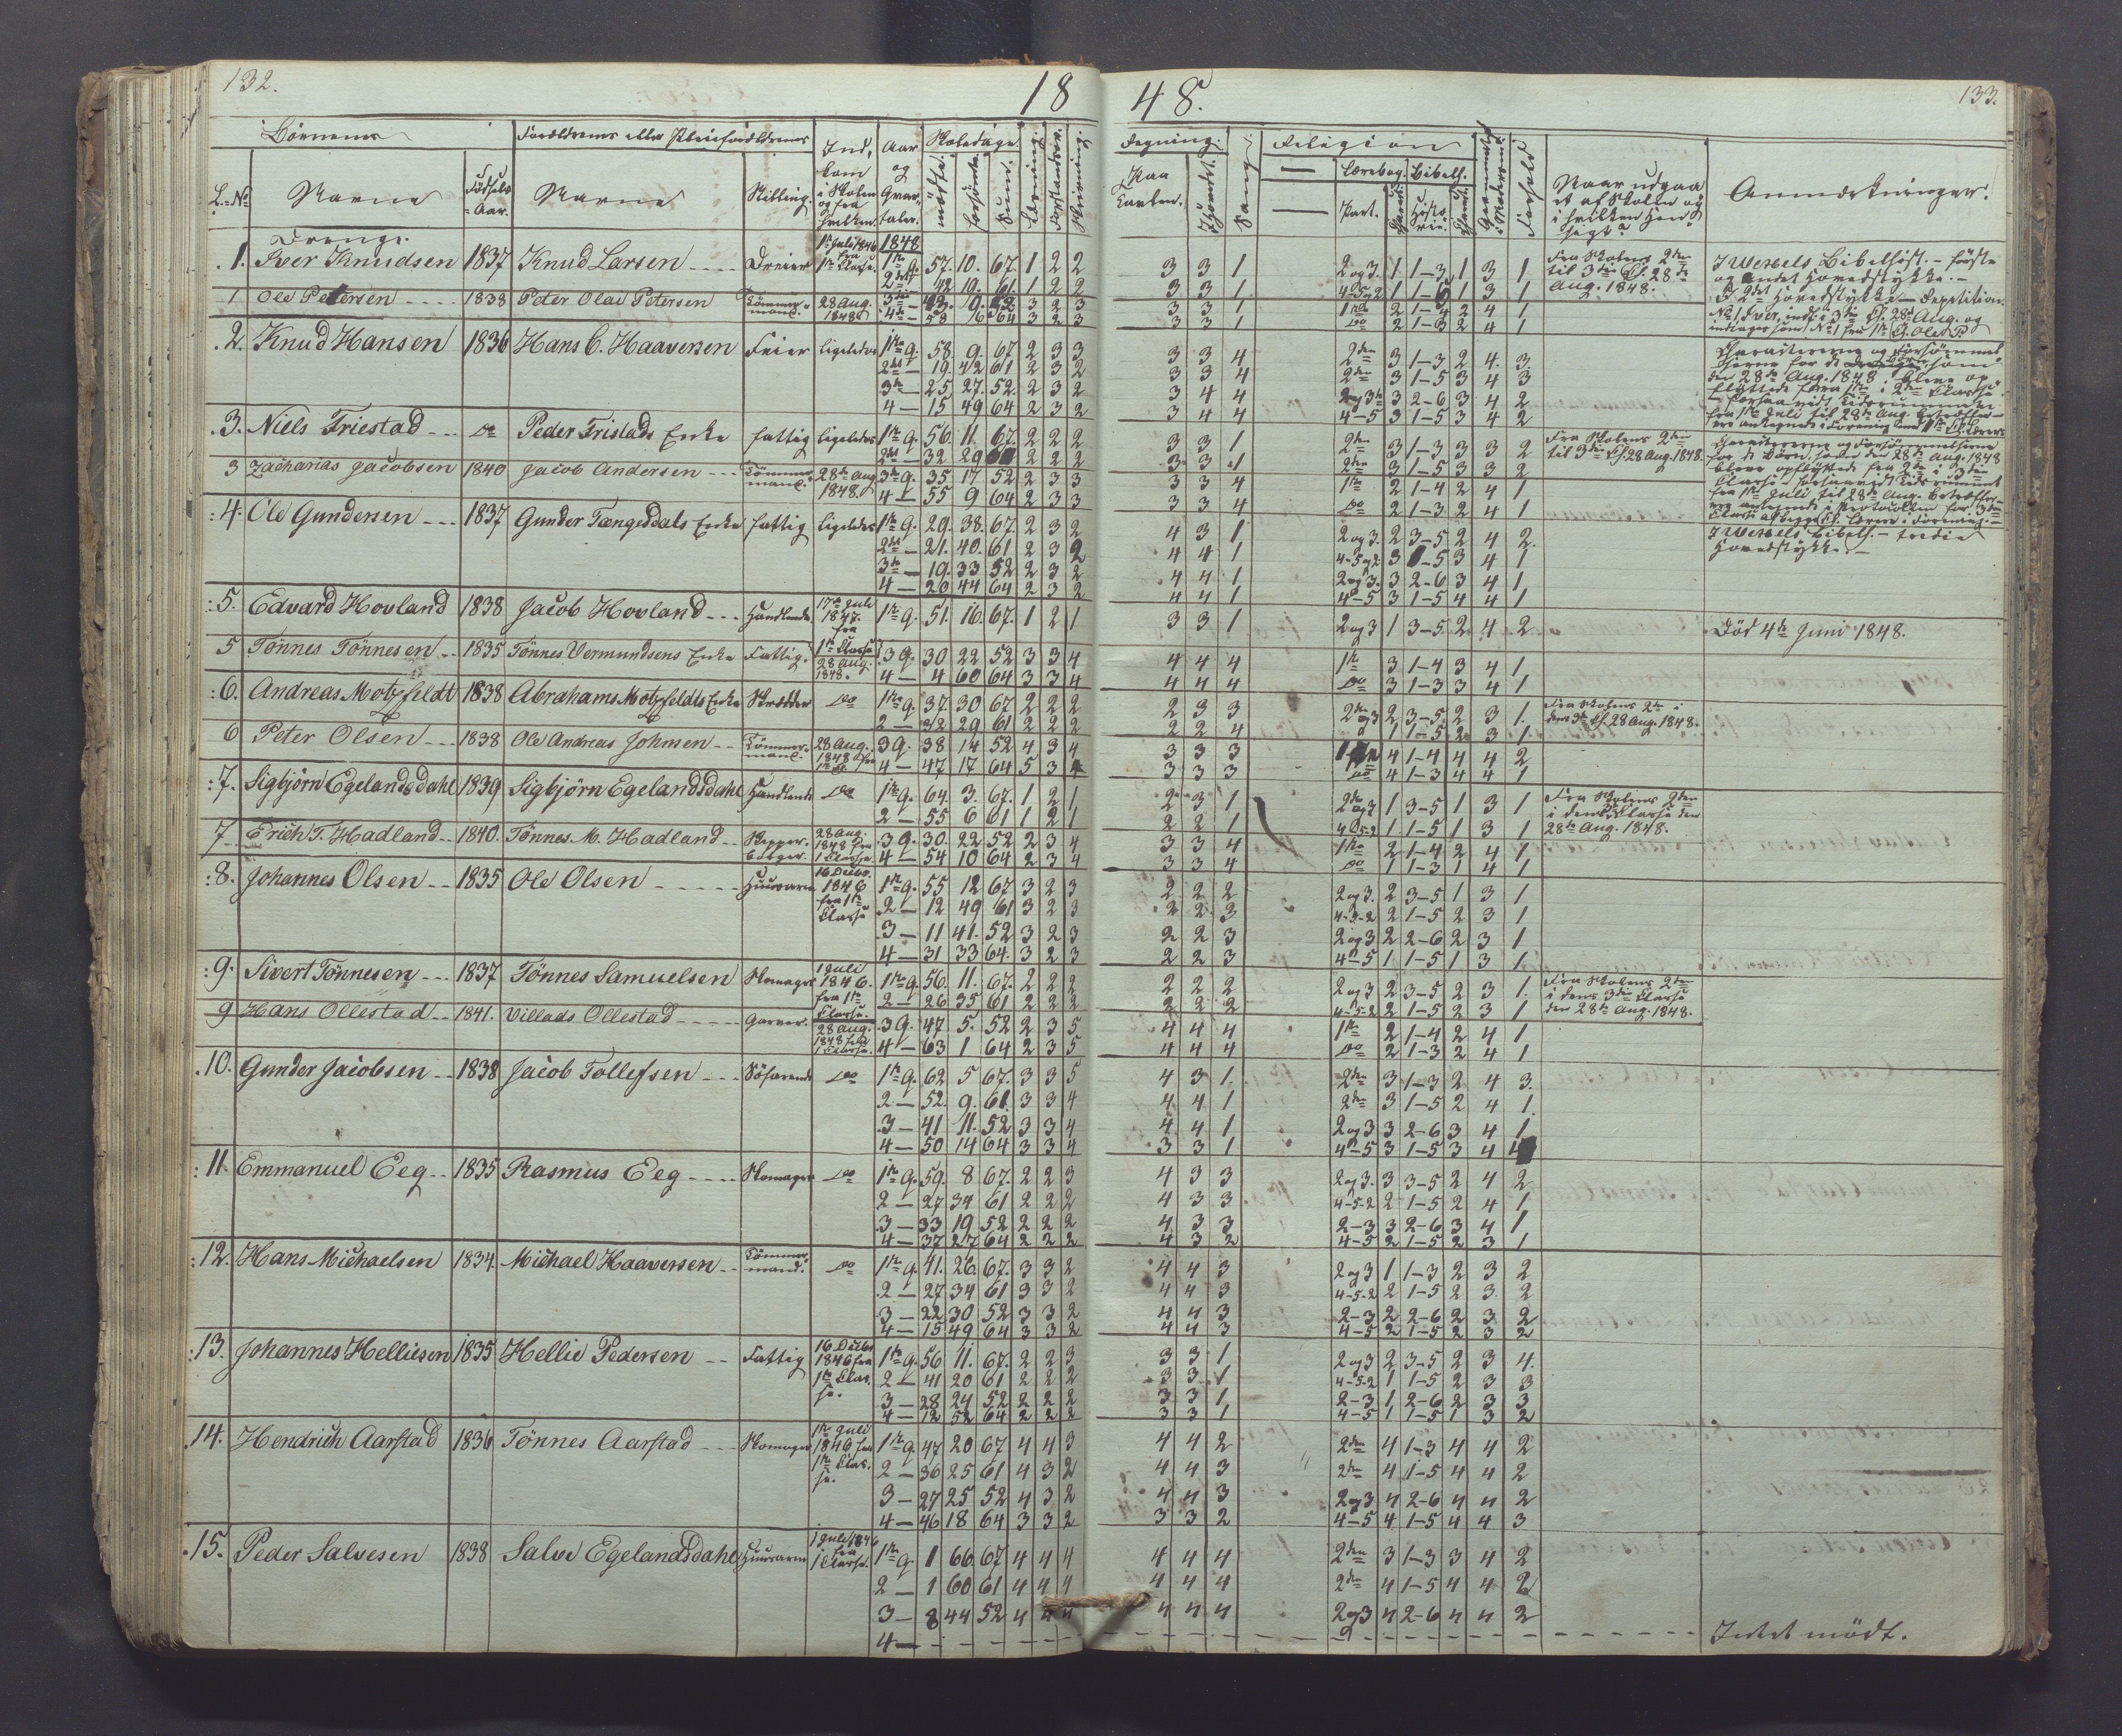 132.
18
48.
133.
Børnenes
Forældrenes eller Pleieforældrenes
Skoledage
Regning.
Religion
L.=No
Navne
Fødsels Aar.
Navne
Stilling.
Indkom i Skolen og fra hvilken.
Aar og Qvartaler.
mødte.
forsømte.
Sum.
Læsning.
Forstandsøv.
Skrivning.
Paa Tavlen.
Sang.
Lærebog.
Bibelh.
Part.
Forhold
Naar udgaaet af Skolen og i hvilken Hensigt?
Anmærkninger.
Drenge.
1. Iver Knudsen 1837 Knud Larsen Dreier 1ste Juli 1846 fra 1ste Classe. 1848 1ste q. 57. 10. 67. 1 2 2 3 3 1 2 og 3. 1 1-3 1 3 1 Fra Skolens 2den til 3die Cl. 28de Aug. 1848.
2det 42 19. 61 1 2 2 3 3 1 1 3 1
1 Ole Petersen 1838 Peter Olai Petersen Tømmermand. 28 Aug. 1848 3die 3 2 3 3 3 1 1ste 2 1-4 2 4 1
4de 58 6 64 3 2 3 3 3 1 do 2 1-3 2 4 1
2. Knud Hansen 1836 Hans C. Haaversen Feier ligeledes 1ste q. 58. 9. 67 2 3 3 3 3 4 2den 3 1-3 2 4. 3.
2det 19. 42 61 2 3 2 3 3 4 2den 3 1-5 3 4 3
3die 25 27. 52. 2 3 2 3 4 4 2 og 3die 3 2-6 3 4 2
4 15 49 64 2 3 2 3 4 4 4-5 3 1-5 3 4 2
3. Niels Friestad do Peder Fristads Enke fattig ligeledes 1ste q. 56. 11. 67. 2 2 2 3 3 1 2den 3 1-3 3 3 2 Fra Skolens 2den til 3die Cl. 28 Aug. 1848.
2det 32 29 61 2 2 2 3 3 1 2den 3 1-5 3 3 2
3 Zacharias Jacobsen 1840 Jacob Andersen Tømmermand. 28de Aug 1848. 3die q. 35 17 52 2 3 3 3 3 4 1ste 2 1-4 2 4 1
4 55 9 64 2 3 3 3 3 4 do 2 1-3 2 4 1
4. Ole Gundersen 1837 Gunder Tængesdals Enke fattig ligeledes 1ste q. 29. 38. 67. 2 3 2 4 3 1 2 og 3. 2 3-5 2 4 2.
2det 21. 40. 61 2 3 2 4 4 1 4-5 og 2 3 1-5 3 4 1
3die 19. 33 52 2 3 2 4 4 1 2 og 3. 3 2-6 3 4 1
4 20 44 64 2 3 2 4 4 1 4-5 3 1-5 4 4 1
5. Edvard Hovland 1838 Jacob Hovland Handlende 17de Juli 1847. fra 1ste Classe 1ste q. 51. 16. 67. 1 2 1 3 3 1 2 og 3 1 3-5. 2 4 2 Død 4de Juni 1848.
5 Tønnes Tønnesen 1835 Tønnes Vermundsens Enke Fattig. 28 Aug. 1848. 3 q. 30 22 52 3 3 4 4 4 4 1ste 3 1-4 3 4 1
4 4 60 64 3 3 4 4 4 4 do 3 1-3 3 4 1
6. Andreas Motzfeldt 1838 Abrahams Motzfeldts Enke Skrædder do 1ste q. 37. 30 67 2 2 2 2 3 3 2den og 3 2 3-5. 2 3 1. Fra Skolens 2den i dens 3die Cl. 28 Aug. 1848.
2 32 29 61 2 2 2 2 2 4 1 1-5 2 3 1
6 Peter Olsen 1838 Ole Andreas Johnsen Tømmermand. 28 Aug. 1848 fra 1ste Cl. 3 q. 38 14 52 4 3 4 3 3 3 4 1-4 4 4 2
4 47 17 64 5 3 4 3 3 3 do 4 1-3 4 4 1
7. Sigbjørn Egelandsdahl 1839 Sigbjørn Egelandsdahl Handlende do 1ste q. 64. 3. 67. 1 2 1 2 3 1 2den og 3 1 3-5 1 3 1 Fra Skolens 2den i dens 3die Classe den 28de Aug. 1848.
2 55 6 61 1 2 1 2 2 1 4-5-2 1 1-5 1 3 1
7 Erich T. Hadland 1840. Tønnes M. Hadland Skipper. Borger. 28 Aug. 1848 fra 1 Classe. 3 q. 30. 22 52 2 3 4 3 3 4 1ste 2 1-4 2 4 1
4 54 10 64 2 3 4 3 3 4 do 1 1-3 1 4 1
8. Johannes Olsen 1835 Ole Olsen Huusarm 16 Decbr. 1846 fra 1ste Classe 1ste q. 55 12 67 3 2 3 2 2 2 2 og 3. 2 3-5 1 3 1
2 12 49 61 3 2 3 2 2 3 4-5-2 2 1-5 2 3 1
3 11 41. 52 3 2 3 2 2 3 2 og 3 2 2-6 2 3 1
4 31 33 64. 3 2 3 2 2 3 4-5 1 1-5 1 3 1
9. Sivert Tønnesen 1837 Tønnes Samuelsen Skomager 1 Juli 1846. fra 1ste Classe. 1ste q. 56. 11. 67. 2 2 2 2 2 2 2 og 3 2 3-5 2 3 1. Fra Skolens 2den i dens 3die Classe den 28de Aug. 1848.
2 26 35 61 2 2 2 2 2 2 4-5-2 2 1-5 2 3 1
9 Hans Ollestad 1841. Villads Ollestad Garver. 28 Aug. 1848 fra 1 Classe. 3 q. 47. 5. 52 2 3 5 4 4 4 1ste 2 1-4 2 4 1
4 63 1 64 2 3 5 4 4 4 do 2 1-3 2 4 1
10. Gunder Jacobsen 1838 Jacob Tollefsen Søfarende do 1ste q. 62 5 67. 3 3 5 4 3 1. 2den 3 1-3 2 4 3.
2 52. 9. 61. 3 3 4 4 4 1 2den 3 1-5 2 4 1.
3 41 11. 52 3 3 4 4 4 1 2 og 3 3 2-6 3 4 1
4 50 14 64 3 3 4 3 3 1 4-5 3 1-5 3 4
11. Emmanuel Eeg 1835 Rasmus Eeg Skomager do 1ste q. 59. 8 67. 2 2 3 4 3 3 2 og 3. 3 3-5 2 4 2
2 27 34 61 2 2 2 4 3 3 4-5-2 2 1-5 2 4 1
3 33 19 52 2 2 2 4 3 3 2-3 3 2-6 3 4 1
4 37 27 64 2 2 2 4 3 2 4-5 2 1-5 2 3 1
12. Hans Michaelsen 1834. Michael Haaversen Tømmermand. do 1ste q. 41. 26. 67. 3 3 2 4 4 3 2 og 3 1 1-3 2 3 2
2 27 34 61 3 3 2 4 4 3 4-5-2 2 1-5 2 3 2
3 22 30 52 3 3 2 4 4 3 2-3 2 2-6 2 3 2
4 15 49 64 3 3 2 4 4 3 4-5 2 1-5 2 3 2
13. Johannes Helliesen 1835 Hellie Pedersen Fattig 16 Decbr 1846 fra 1ste Classe. 1ste q. 56 11. 67. 2 2 3 3 3 1 2 og 3 2 3-5 2 3 4.
2 41 20 61 2 2 2 3 3 1 4-5-2 1 1-5 2 3 3
3 28 24 52 2 2 2 3 3 1 2-3 1 2-6 2 3 3
4 12 52 64 2 2 2 3 3 1 4-5 1 1-5 1 3 2
14. Hendrich Aarstad 1836 Tønnes Aarstad Skomager 1ste Juli 1846 fra 1ste Classe. 1ste q. 47 20 67 4 4 3 4 4 2 2den 4 1-3 4 4 2
2 36 25 61 4 3 2 4 4 3 2den 4 1-5 4 4 2
3 27 25 52 4 3 2 4 4 3 2 og 3 4 2-6 4 4 2
4 46 18 64 3 3 2 3 3 2 4-5 4 1-5 4 4 3
15. Peder Salvesen 1838 Salve Egelandsdahl Huusarm 1 Juli 1846 fra 1 Classe. 1ste q. 1 66 67 4 4 4 4 4 4 2den 3 1-3 3 4 2
2 1 60 61 4 4 4 4 4 4 2den 4 1-5 4 4 2
3 8 44 52 4 4 4 4 4 4 2 og 3 4 2-6 4 4 2
4 Intet mødt.
I Wexels Bibelhist. - første
og andet Hovedstykke. -
I 2det Hovedstykke - Repetition.
den 28de Aug. 1848
fra 1ste Juli til 28de Aug.
for de Børn, som den 28de Aug. 1848
I Wexels Bibelh. - tredie
Hovedstykke. -